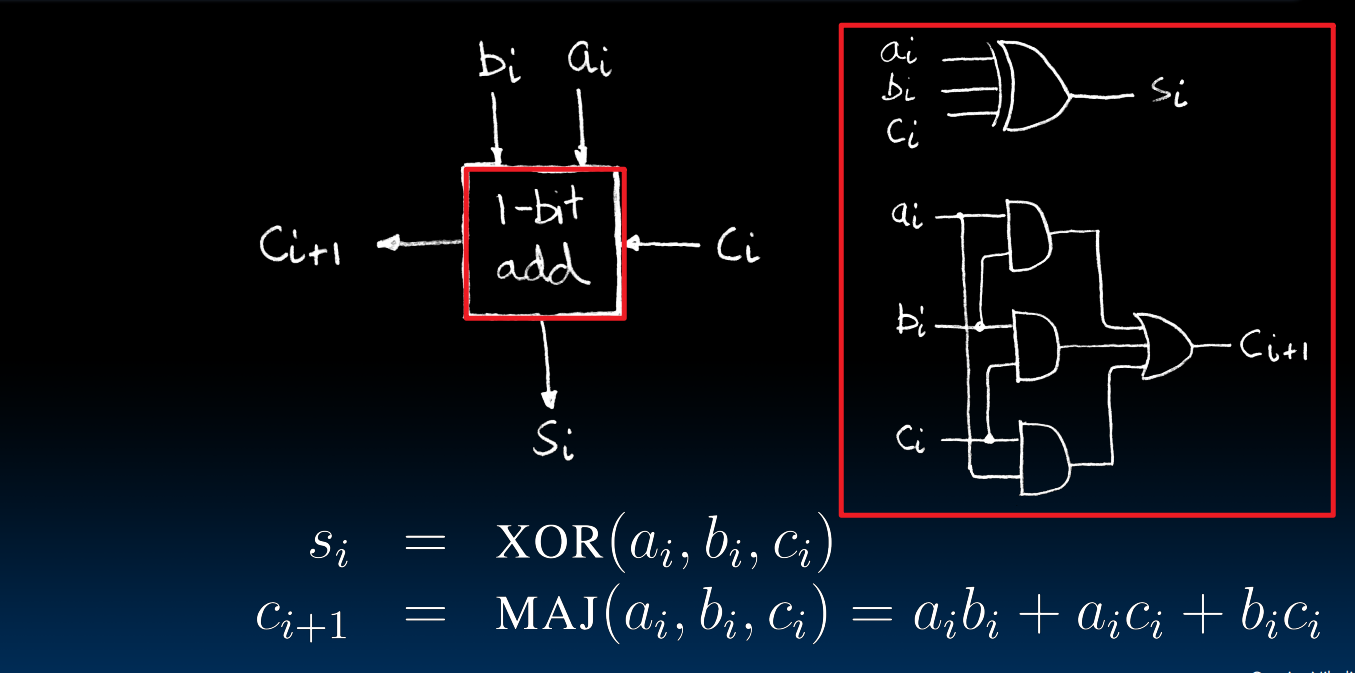 bᵢ aᵢ
1-bit
add
Cᵢ₊₁
Cᵢ
Sᵢ
aᵢ
bᵢ
Cᵢ
Sᵢ
aᵢ
bᵢ
Cᵢ
Cᵢ₊₁
sᵢ = XOR(aᵢ, bᵢ, cᵢ)
cᵢ₊₁ = MAJ(aᵢ, bᵢ, cᵢ) = aᵢbᵢ + aᵢcᵢ + bᵢcᵢ